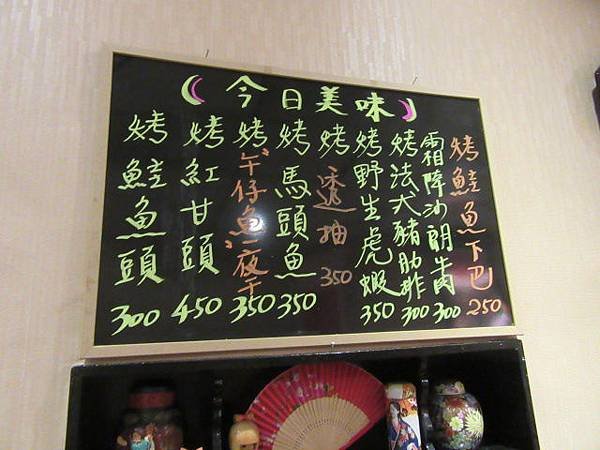 今日美味
烤鮭魚下巴 250
霜降沙朗牛肉 300
烤法犬豬肋排 300
烤野生虎蝦 350
烤透抽 350
烤馬頭魚 350
烤午仔魚一夜干 350
烤紅甘頭 450
烤鮭魚頭 300